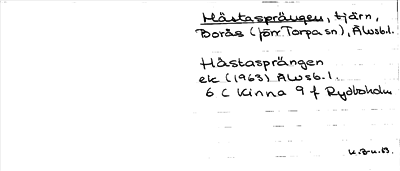 Håstasprängen, tjärn,
Borås (förr Torpa sn), Älvsb.l.
Håstasprängen
ek (1963) Älvsb.l.
6 C Kinna 9 f Rydboholm